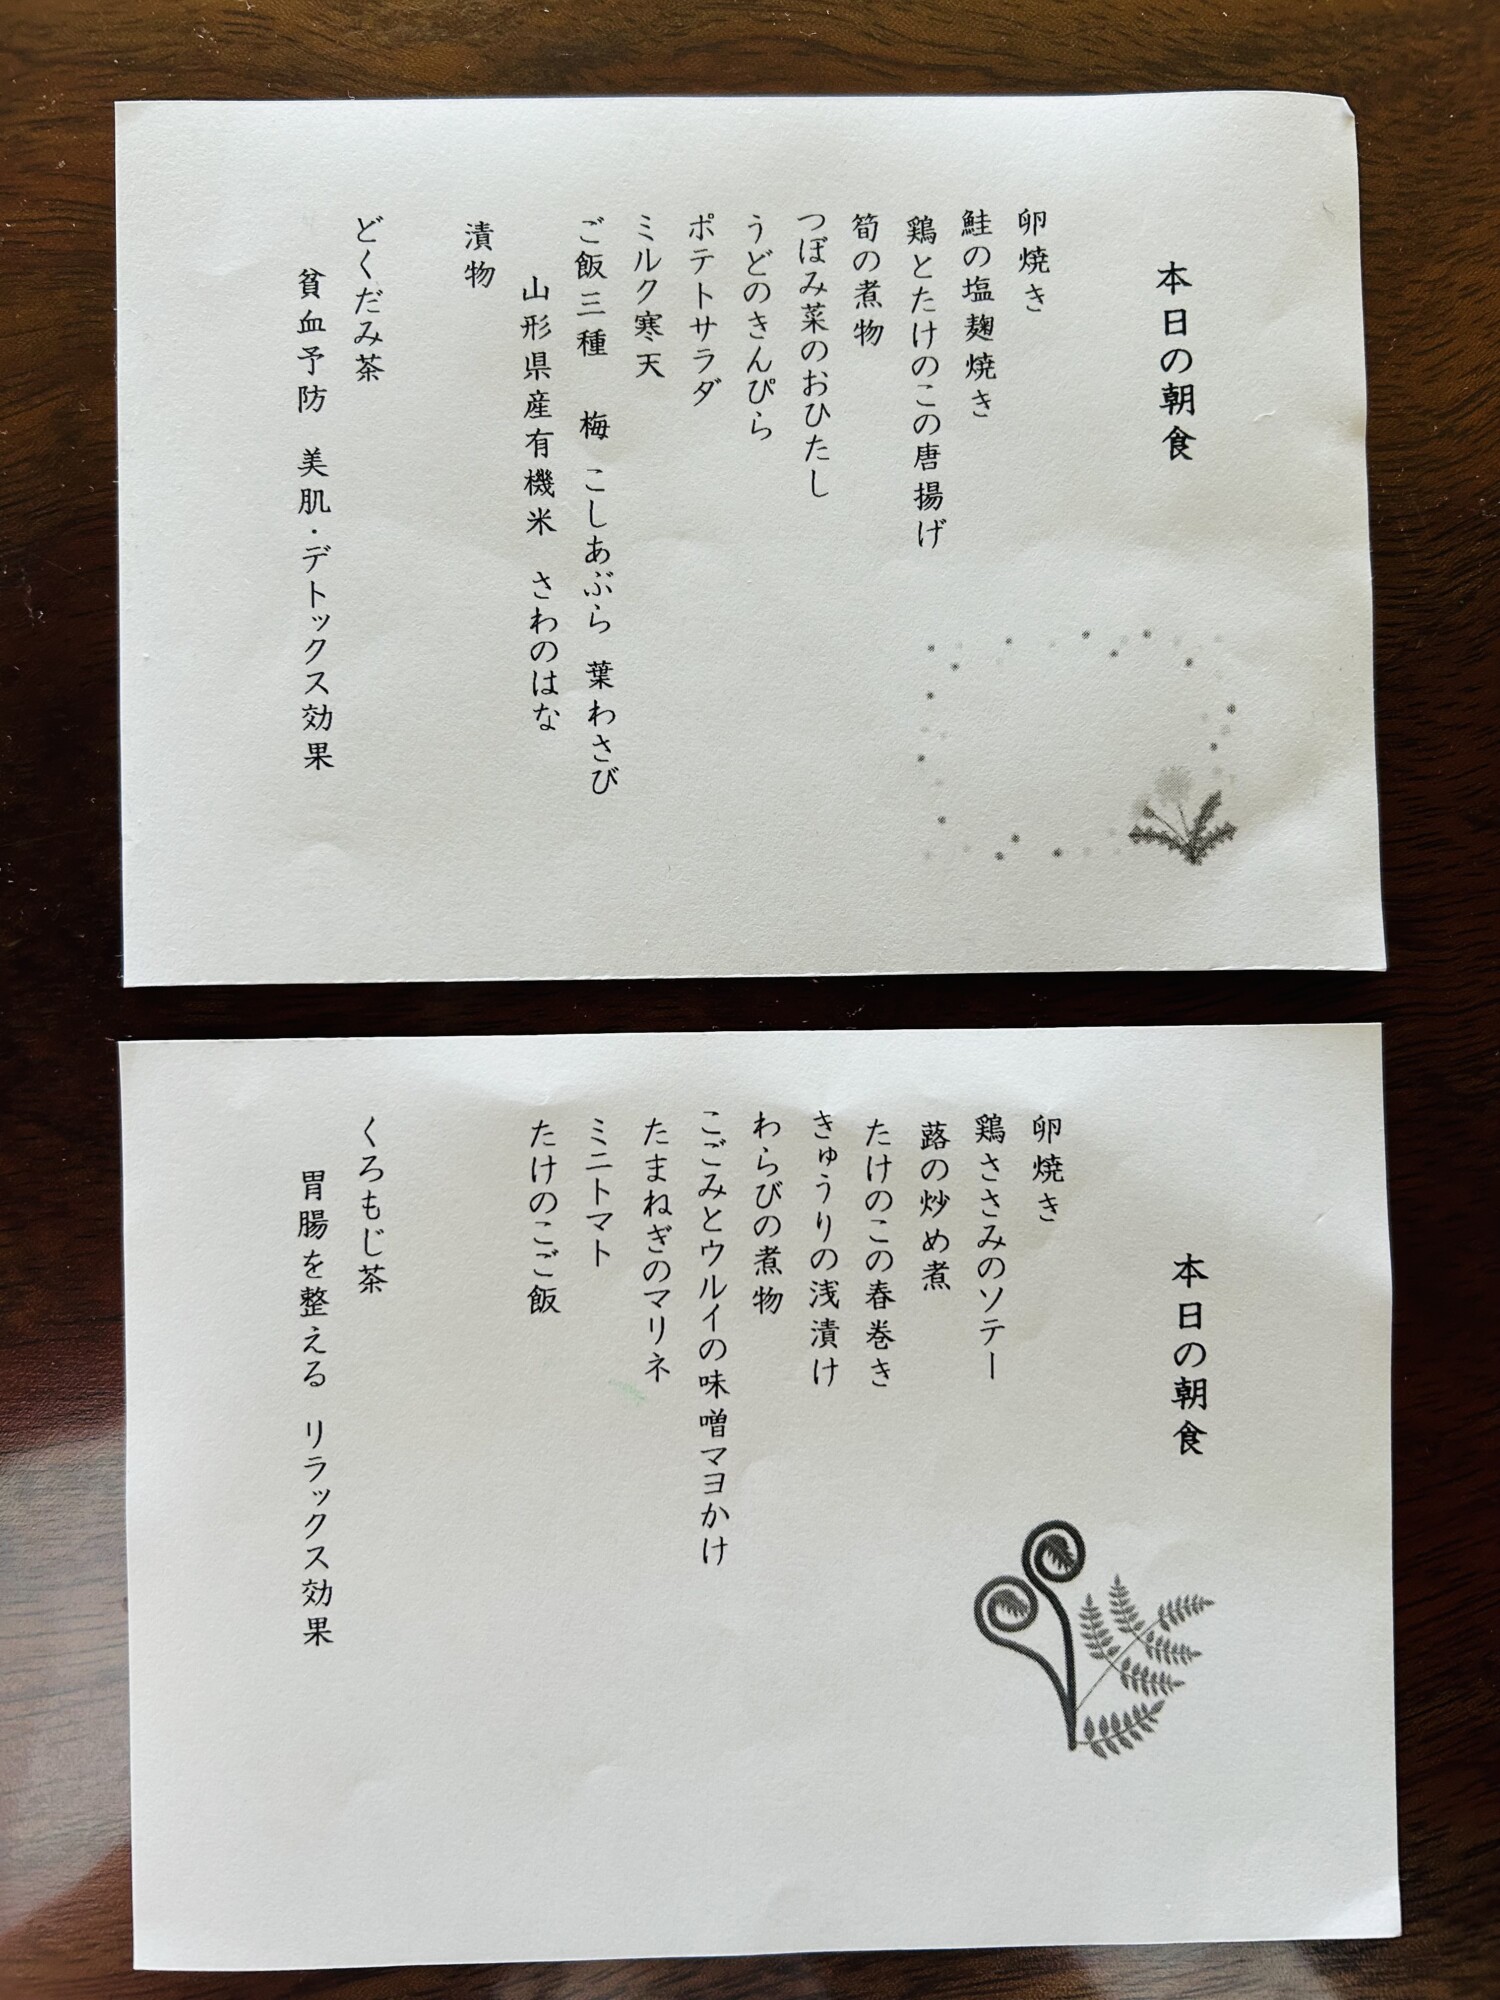 本日の朝食
卵焼き
鮭の塩麹焼き
鶏とたけのこの唐揚げ
筍の煮物
つぼみ菜のおひたし
うどのきんぴら
ポテトサラダ
ミルク寒天
ご飯三種 梅 こしあぶら 葉わさび
山形県産有機米 さわのはな
漬物
どくだみ茶
貧血予防 美肌・デトックス効果
本日の朝食
卵焼き
鶏ささみのソテー
蕗の炒め煮
たけのこの春巻き
きゅうりの浅漬け
わらびの煮物
こごみとウルイの味噌マヨかけ
たまねぎのマリネ
ミニトマト
たけのこご飯
くろもじ茶
胃腸を整える リラックス効果